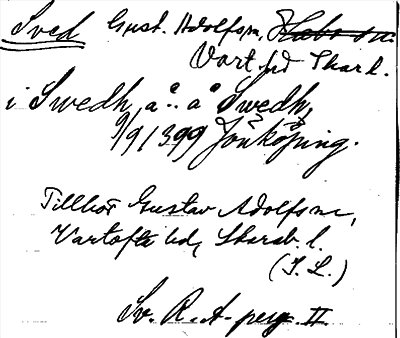 Sved Gust. Adolfs sn, Habo sn.
Vart. hd Skar l.
i Swedh, å..å Swedh,
9/9 1399 Jönköping.
Tillhör Gustav Adolfs sn,
Vartofta hd, Skarab. l.
(I. L.)
Sv. R. A. perg. II.